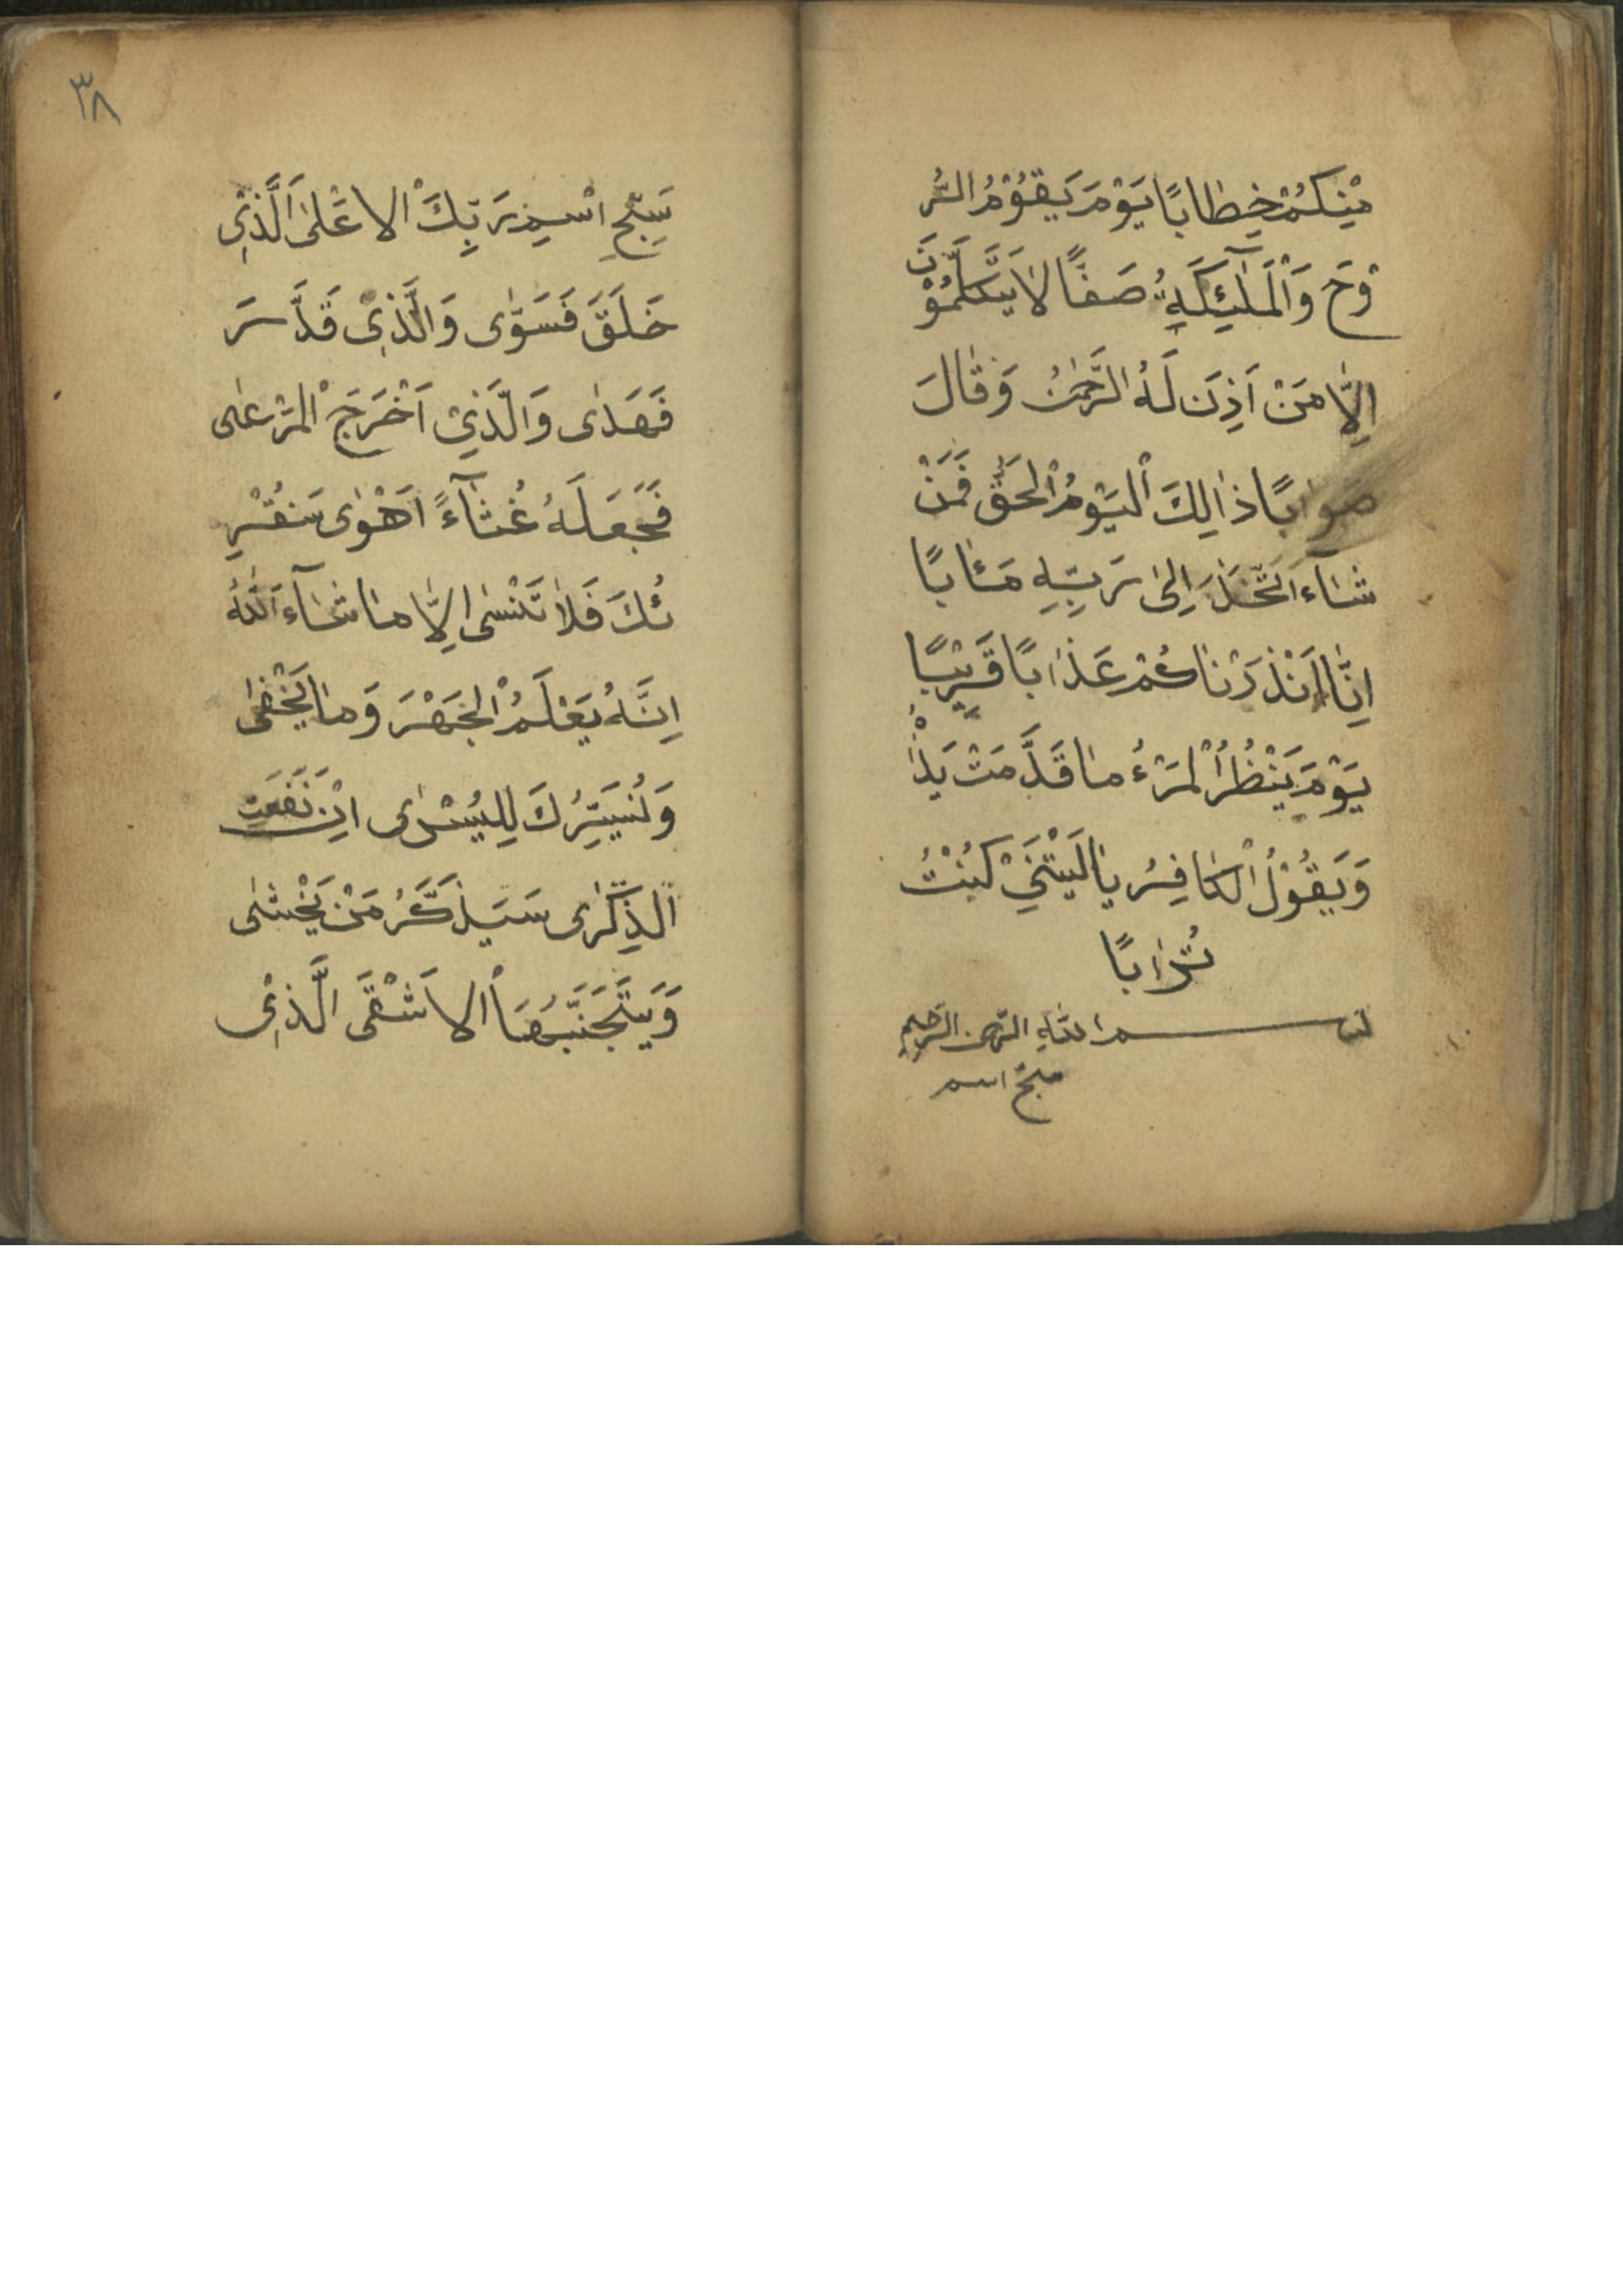 مْنِكُمْ خِطَابًا يَوْمَ يَقُوْمُ الرُّ
وْحَ وَالْمَلٰٓئِكَةِ صَفًّا لَا يَتَكَلَّمُوْنَ
اِلَّا مَنْ اَذِنَ لَهُ الرَّحْمٰنُ وَقَالَ
صَوَابًا ذَالِكَ الْيَوْمُ الْحَقّ فَمَنْ
شَآءَ اتَّخَذَ اِلىٰ رَبِّهِ مَئَابًا
اِنَّا اَنْذَرْنَاكُمْ عَذَابًا قَرِيْبًا
يَوْمَ يَنْظُرُ الْمَرْءُ مَا قَدَّمَتْ يَدٰاهُ
وَيَقُوْلُ الْكَافِرُ يَا لَيْتَنِيْ كُنْتُ
تُرَابًا
بسم اللّٰهِ الرّحمن الرَّحيمِ
سبّح اسم
٣٨
سَبِّحِ اسْمِ رَبِّكَ الْاَعْلىٰ اَلَّذِيْ
خَلَقَ فَسَوّٰى وَالَّذِيْ قَدَّرَ
فَهَدٰى وَالَّذِيْ اَخْرَجَ الْمَرْعٰى
فَجَعَلَهُ غُثَآءً اَحْوٰى سَنُقْرِ
ئُكَ فَلَا تَنْسٰى اِلَّا مَا شَآءَ اللّٰهُ
اِنَّهُ يَعْلَمُ الْجَهْرَ وَمَا يَخْفٰى
وَلُنيَسِّرُكَ لِلْيُسْرٰى اِنْ نَفَعَتِ
الذِّكْرٰى سَيَذَّكَّرُ مَنْ يَخْشٰى
وَيَتَجَنَّبُهَا الْاَشْقَى الَّذِيْ